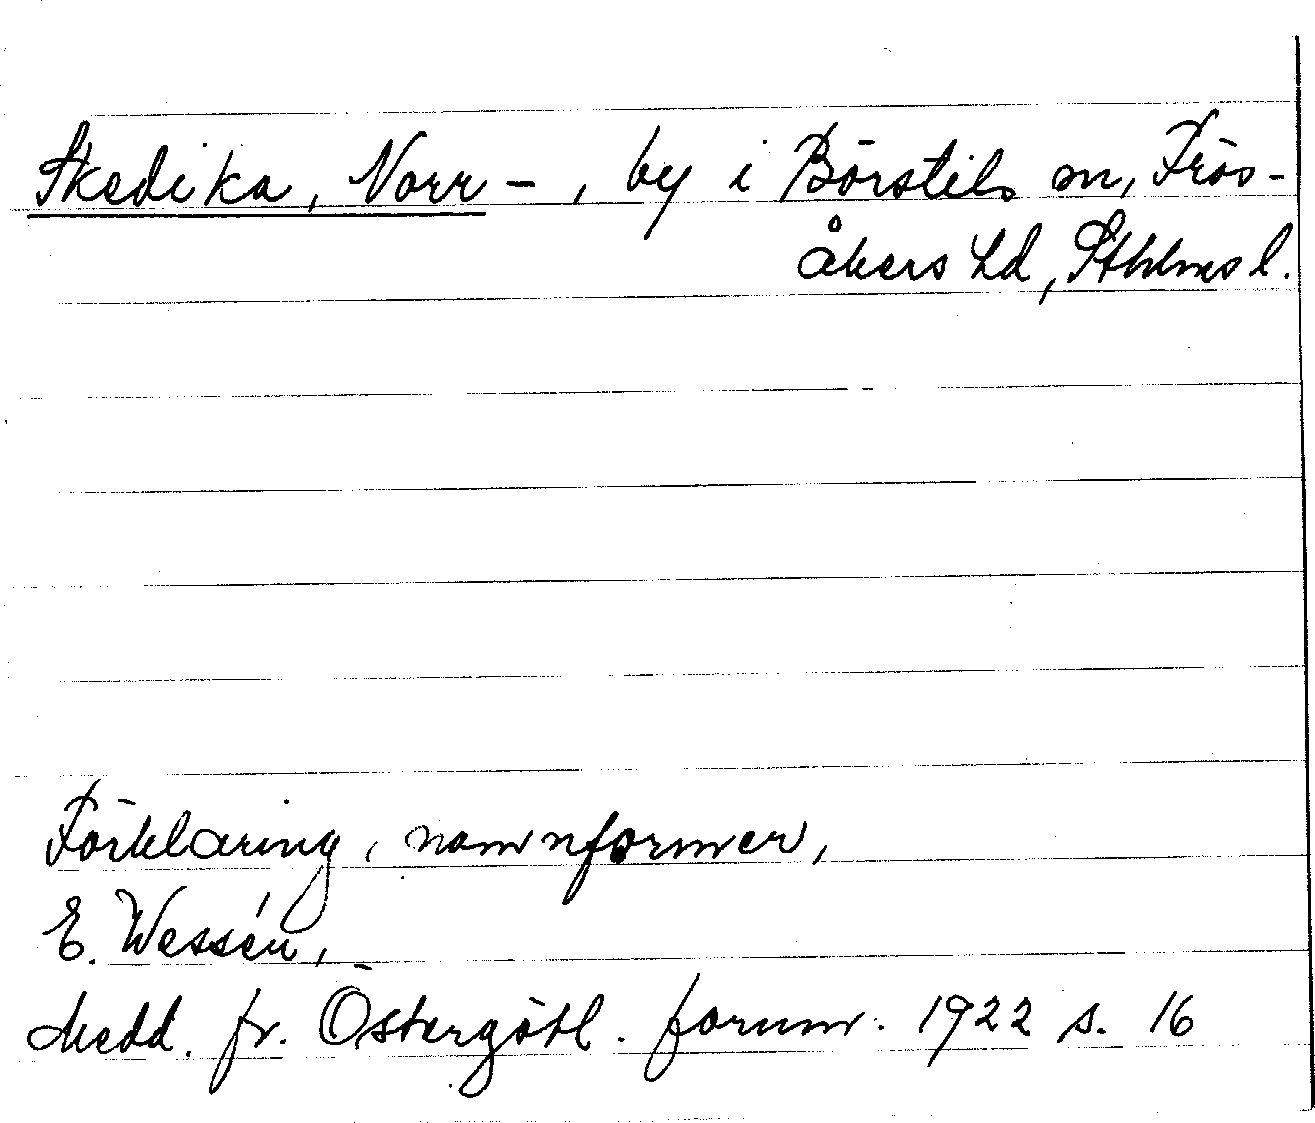 Skedika, Norr-, by i Börstils sn, Frös-
åkers hd, Sthlms l.
Förklaring, namnformer,
E. Wessén,
Medd. fr. Östergötl. fornm. 1922 s. 16